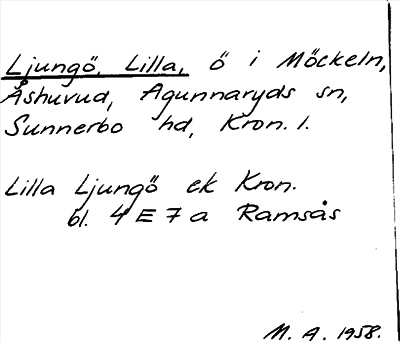 Ljungö, Lilla, ö i Möckeln,
Åshuvud, Agunnaryds sn,
Sunnerbo hd, Kron. l.
Lilla Ljungö ek Kron.
bl. 4 E 7 a Ramsås
M. A. 1958.